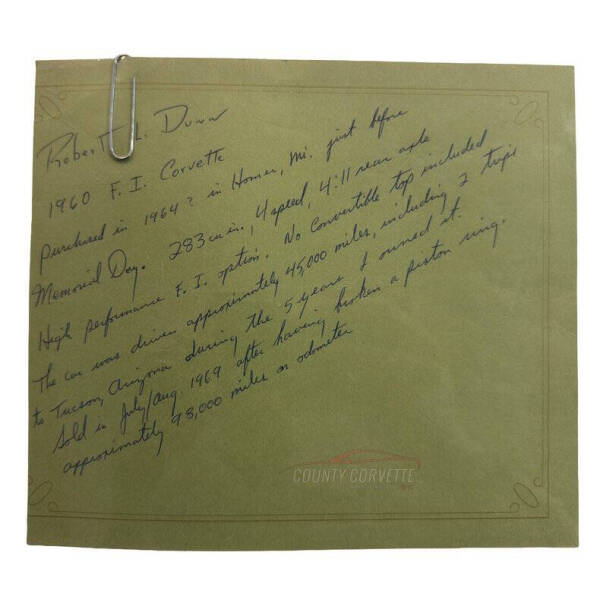 Robert L. Dunn
1960 F. I. Corvette
purchased in 1964? in Homer, Mi. just before
Memorial Day. 283 cu in., 4 speed, 4:11 rear axle
High performance F. I. option. No Convertible top included
The car was driven approximately 45,000 miles, including 2 trips
to Tucson, Arizona during the 5 years I owned it.
Sold in July/Aug 1969 after having broken a piston ring.
approximately 98,000 miles on odometer
COUNTY CORVETTE